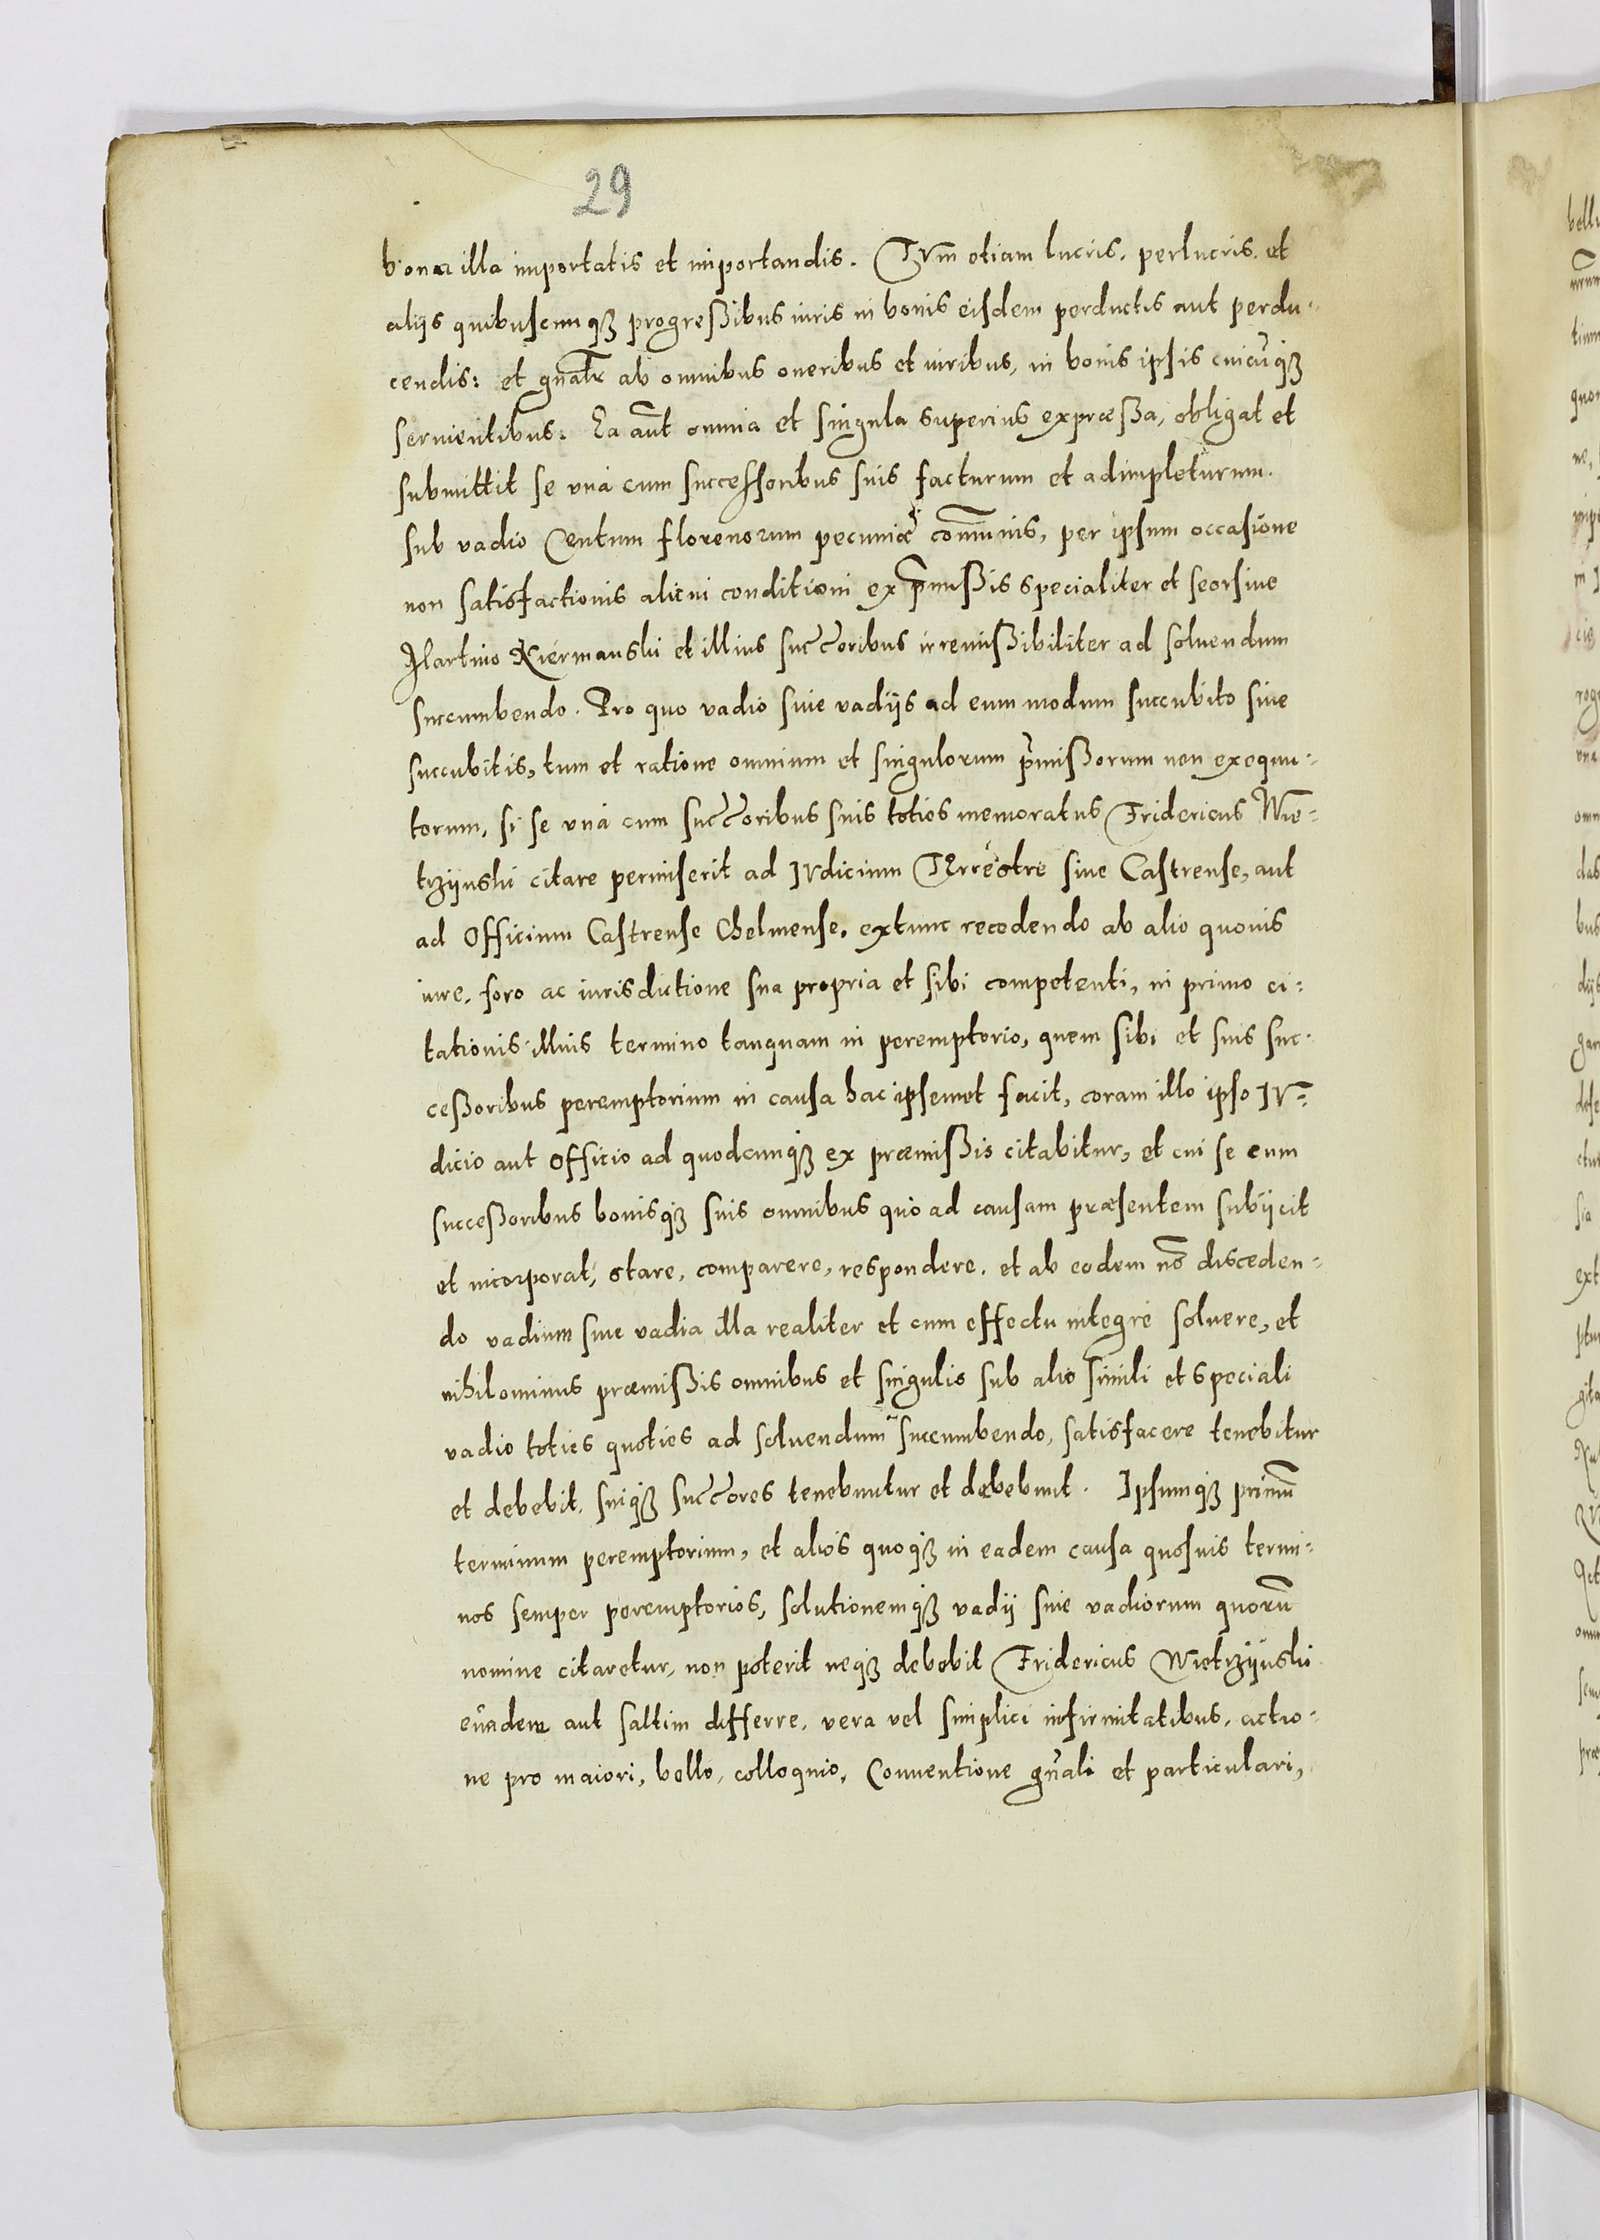 29
bona illa importatis et importandis. Tum etiam lucris, perlucris, et
alijs quibuscunqꝫ progreßibus iuris in bonis eisdem perductis aut perdu-
cendis: et gñalr ab omnibus oneribus et iuribus, in bonis ipsis cuicũqꝫ
seruientibus: Ea aũt omnia et singula superius expræßa, obligat et
submittit se vnà cum successoribus suis facturum et adimpleturum.
sub vadio Centum florenorum pecuniæ com̃unis, per ipsum occasione
non satisfactionis alicui conditioni ex p̃mißis specialiter et seorsiue
Martino Kiermanski et illius succ̃oribus irremißibiliter ad soluendum
succumbendo. Pro quo vadio siue vadijs ad eum modum succubito siue
succubitis, tum et ratione omnium et singulorum p̃mißorum non exequu-
torum, si se vnà cum succ̃oribus suis toties memoratus Fridericus Wie-
trzijnski citare permiserit ad Iudicium Terrestre siue Castrense, aut
ad Officium Castrense Chelmense. extunc recedendo ab alio quouis
iure, foro ac iurisdictione sua propria et sibi competenti, in primo ci-
tationis illius termino tanquam in peremptorio, quem sibi et suis suc-
ceßoribus peremptorium in causa hac ipsemet facit, coram illo ipso Iu-
dicio aut Officio ad quodcunqꝫ ex præmißis citabitur, et cui se cum
succeßoribus bonisqꝫ suis omnibus quò ad causam præsentem subijcit
et incorporat, stare, comparere, respondere, et ab eodem nõ disceden-
do vadium siue vadia illa realiter et cum effectu integrè soluere, et
nihilominus præmißis omnibus et singulis sub alio simili et speciali
vadio toties quoties ad soluendum succumbendo, satisfacere tenebitur
et debebit, suiqꝫ succ̃ores tenebuntur et debebunt. Ipsumqꝫ primũ
terminum peremptorium, et alios quoqꝫ in eadem causa quosuis termi-
nos semper peremptorios, solutionemqꝫ vadij siue vadiorum quorũ
nomine citaretur, non poterit neqꝫ debebit Fridericus Wietrzijnski
euadere aut saltim differre, vera vel simplici infirmitatibus, actio-
ne pro maiori, bello, colloquio, Conuentione gñali et particulari,